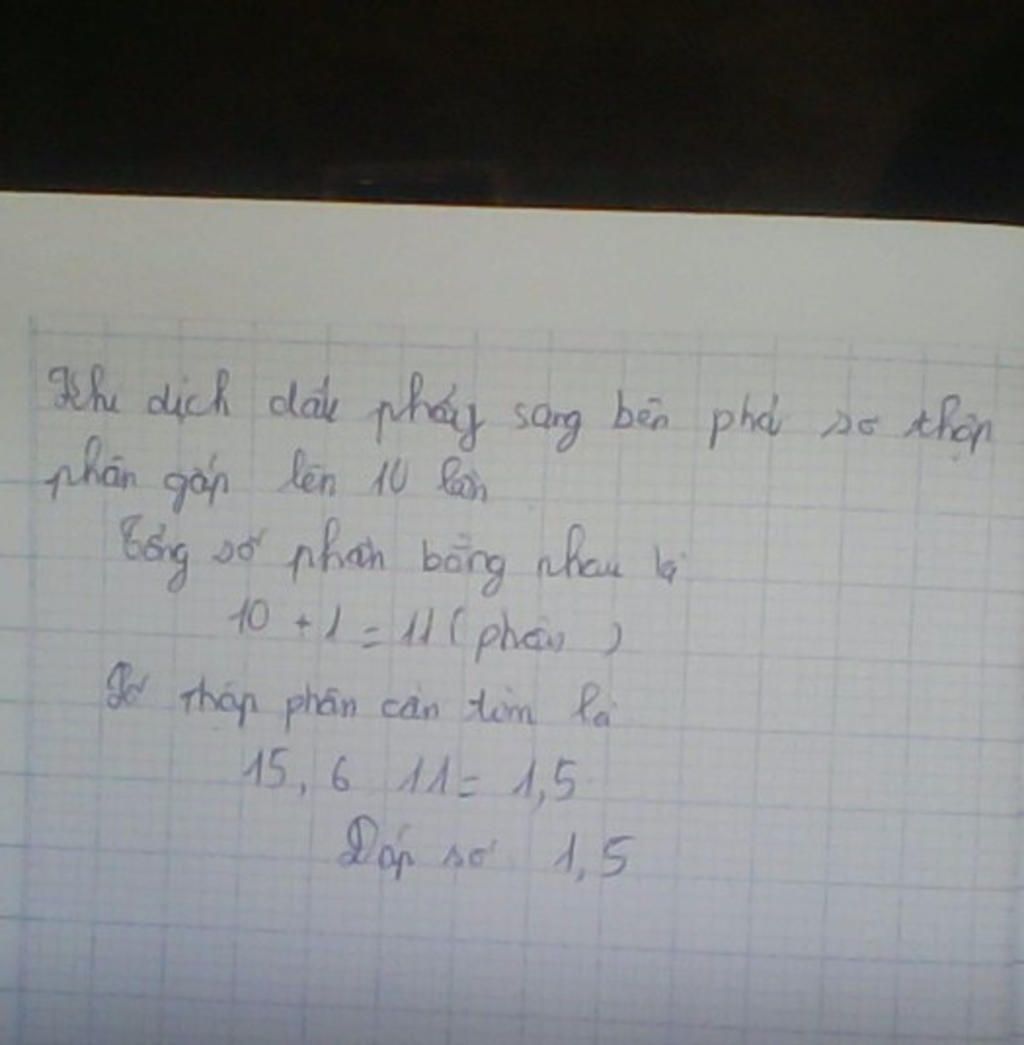 Khi dịch dấu phẩy sang bên phải số thập
phân gấp lên 10 lần
Tổng số phần bằng nhau là
10 + 1 = 11 ( phần )
Số thập phân cần tìm là
15, 6 11 = 1,5
Đáp số 1,5